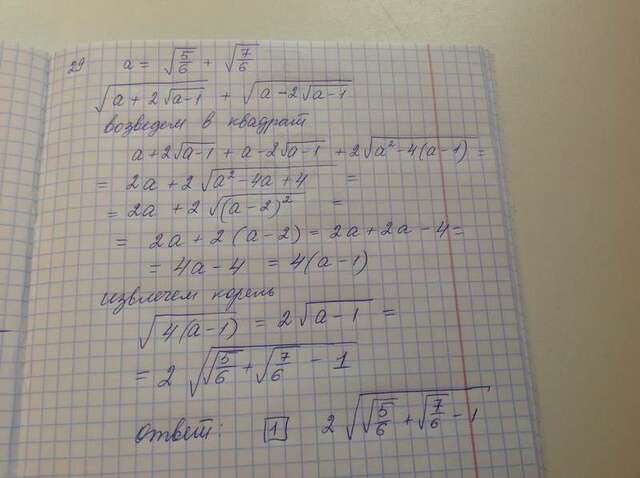 29 a = √(5/6) + √(7/6)
√(a + 2√(a-1)) + √(a - 2√(a-1))
возведем в квадрат
a + 2√(a-1) + a - 2√(a-1) + 2√(a² - 4(a-1)) =
= 2a + 2√(a² - 4a + 4) =
= 2a + 2√((a-2)²) =
= 2a + 2(a-2) = 2a + 2a - 4 =
= 4a - 4 = 4(a-1)
извлечем корень
√(4(a-1)) = 2√(a-1) =
= 2√(√(5/6) + √(7/6) - 1)
ответ: 1 2√(√(5/6) + √(7/6) - 1)